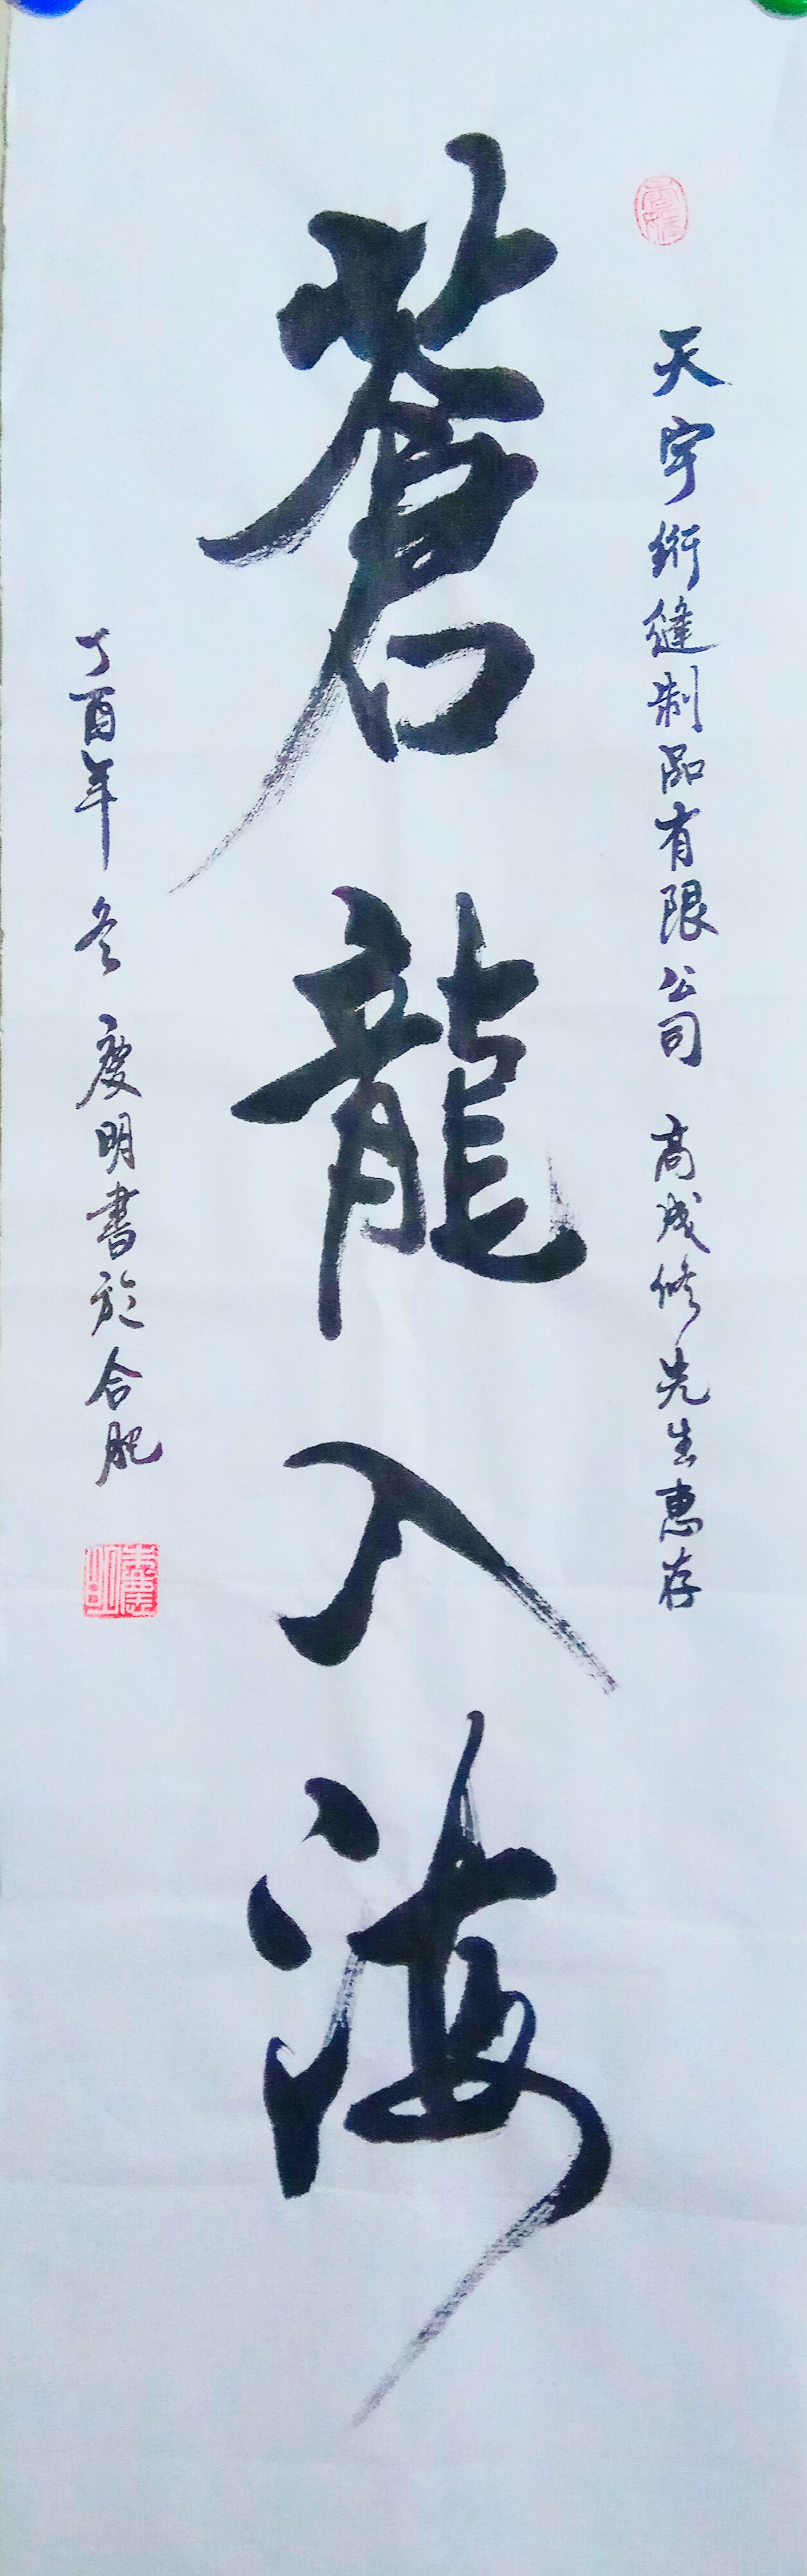 天宇絎缝制品有限公司 高成修先生惠存
蒼龍入海
丁酉年冬 慶明書於合肥